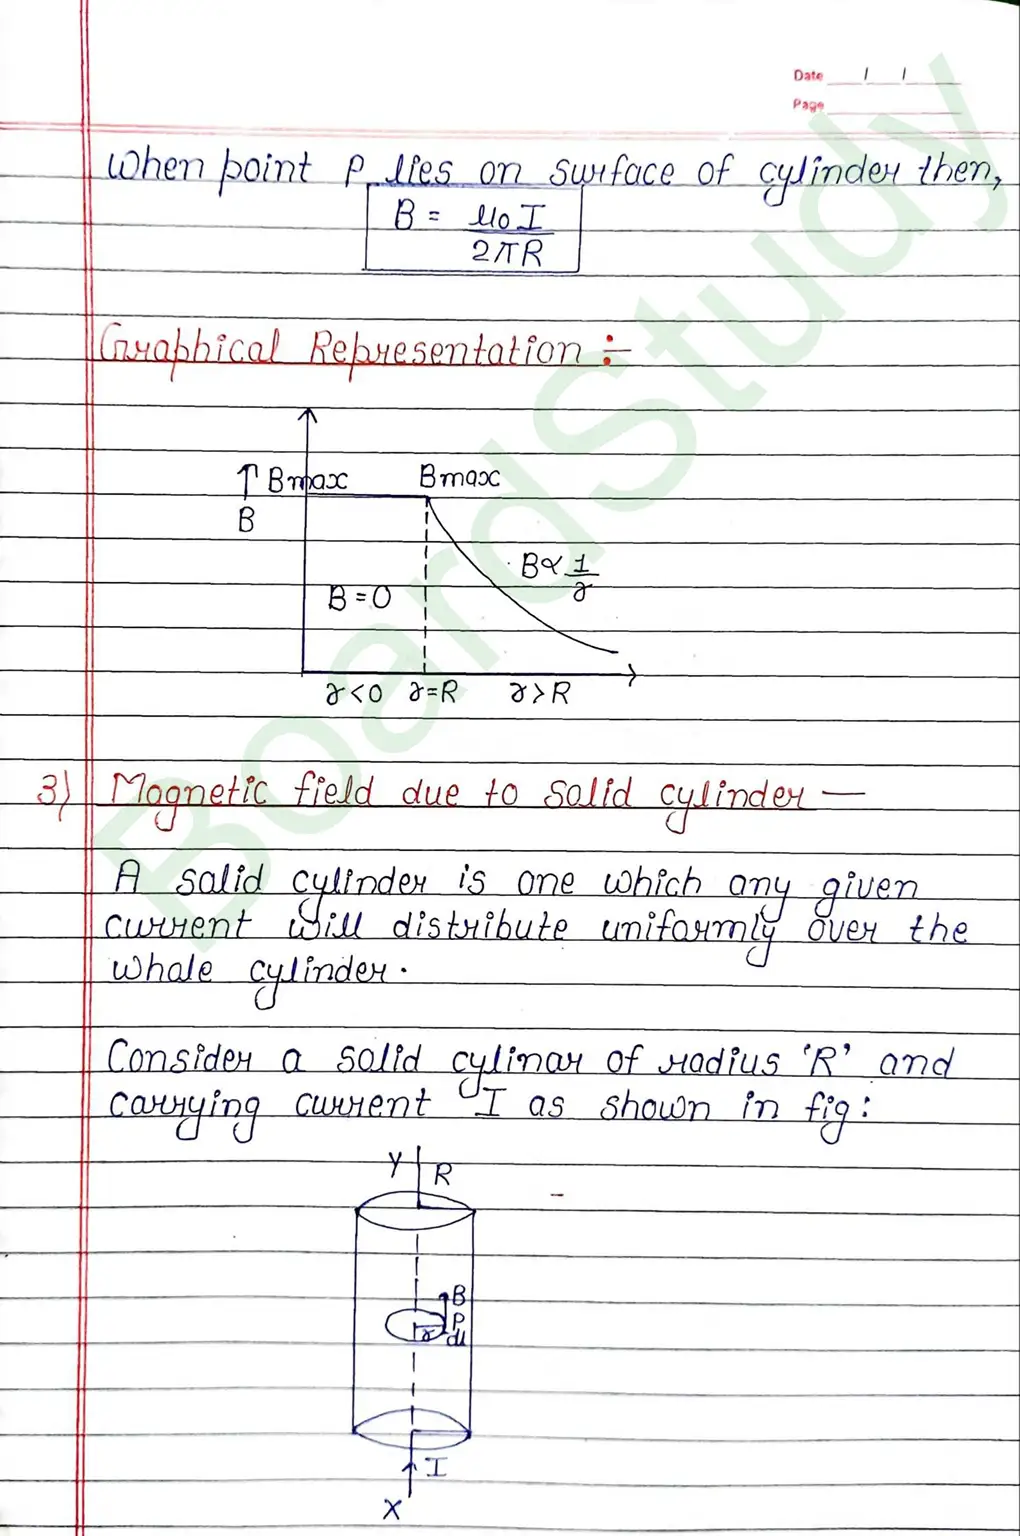 Date / /
Page
When point P lies on surface of cylinder then,
B = μ0 I
2πR
Graphical Representation :-
↑ Bmax Bmax
B
B ∝ 1
r
B = 0
r<0 r=R r>R
3) Magnetic field due to solid cylinder —
A solid cylinder is one which any given
current will distribute uniformly over the
whole cylinder.
Consider a solid cylinar of radius 'R' and
carrying current I as shown in fig:
Y R
B
P
r dl
I
X
BoardStudy